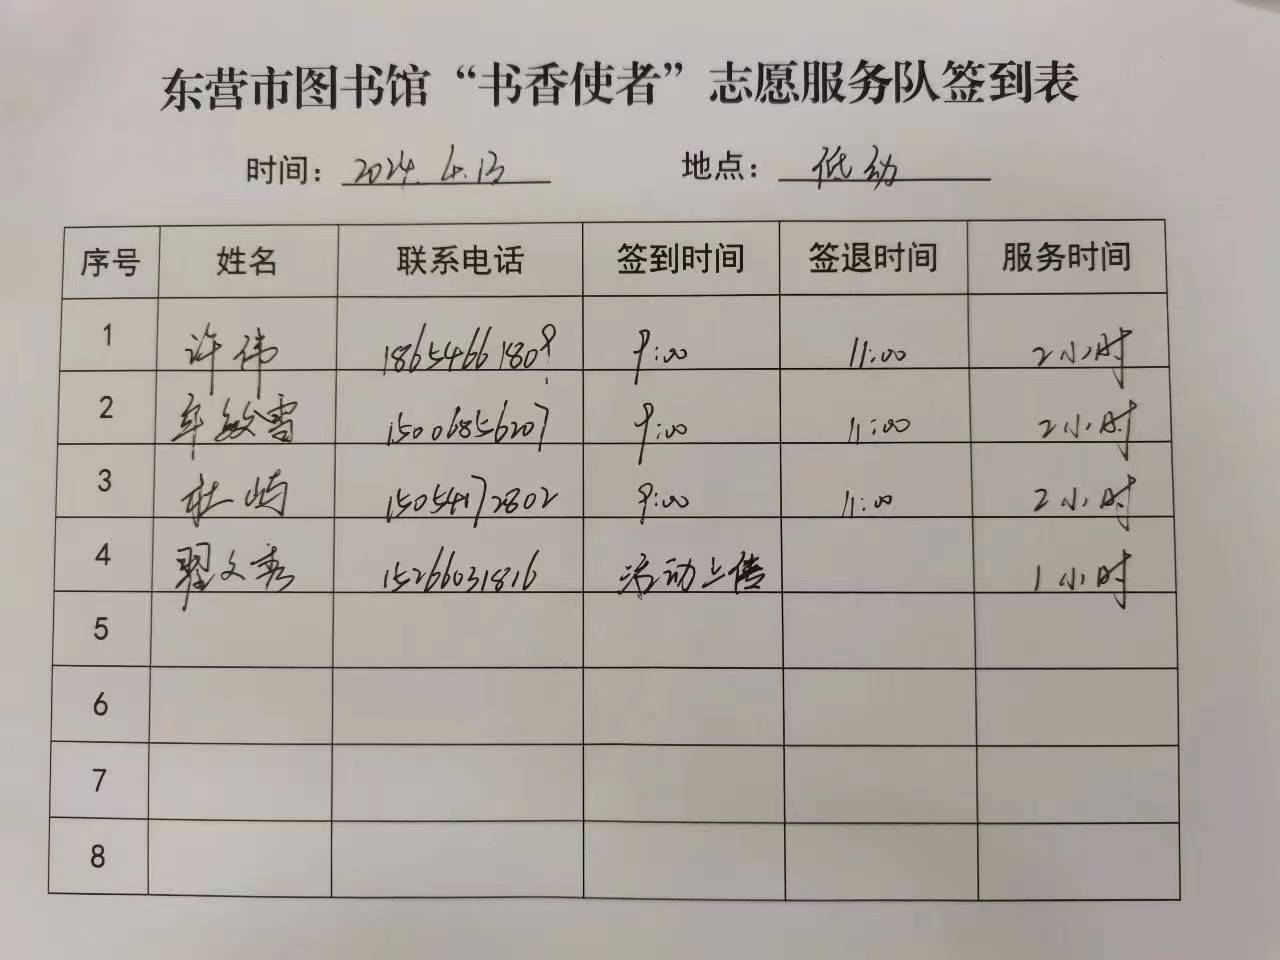 东营市图书馆“书香使者”志愿服务队签到表
时间：2024.4.13 地点：低幼
序号 姓名 联系电话 签到时间 签退时间 服务时间
1 许伟 18654661809 9:00 11:00 2小时
2 年敏雪 15006856207 9:00 11:00 2小时
3 杜屿 15054172802 9:00 11:00 2小时
4 翟文秀 15266031816 活动上传 1小时
5
6
7
8